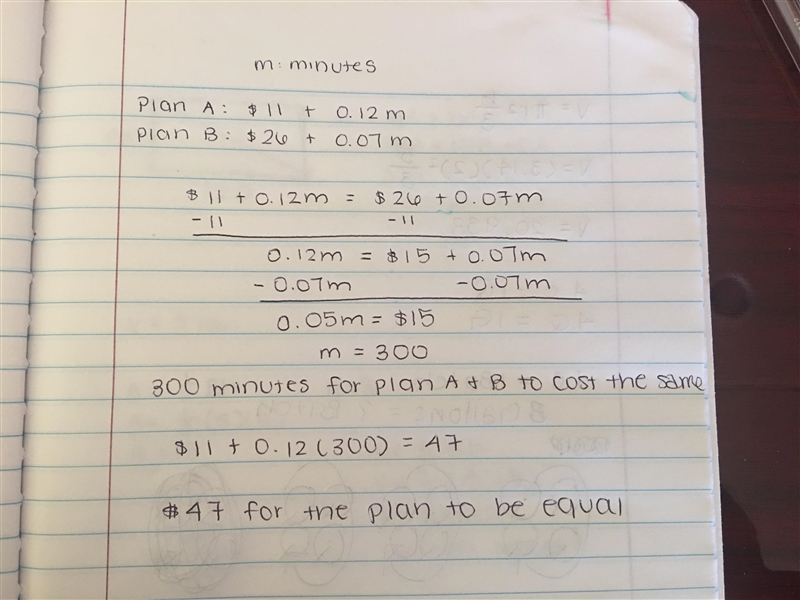 m: minutes
Plan A: $11 + 0.12m
Plan B: $26 + 0.07m
$11 + 0.12m = $26 + 0.07m
-11 -11
0.12m = $15 + 0.07m
- 0.07m -0.07m
0.05m = $15
m = 300
300 minutes for plan A & B to cost the same
$11 + 0.12(300) = 47
$47 for the plan to be equal